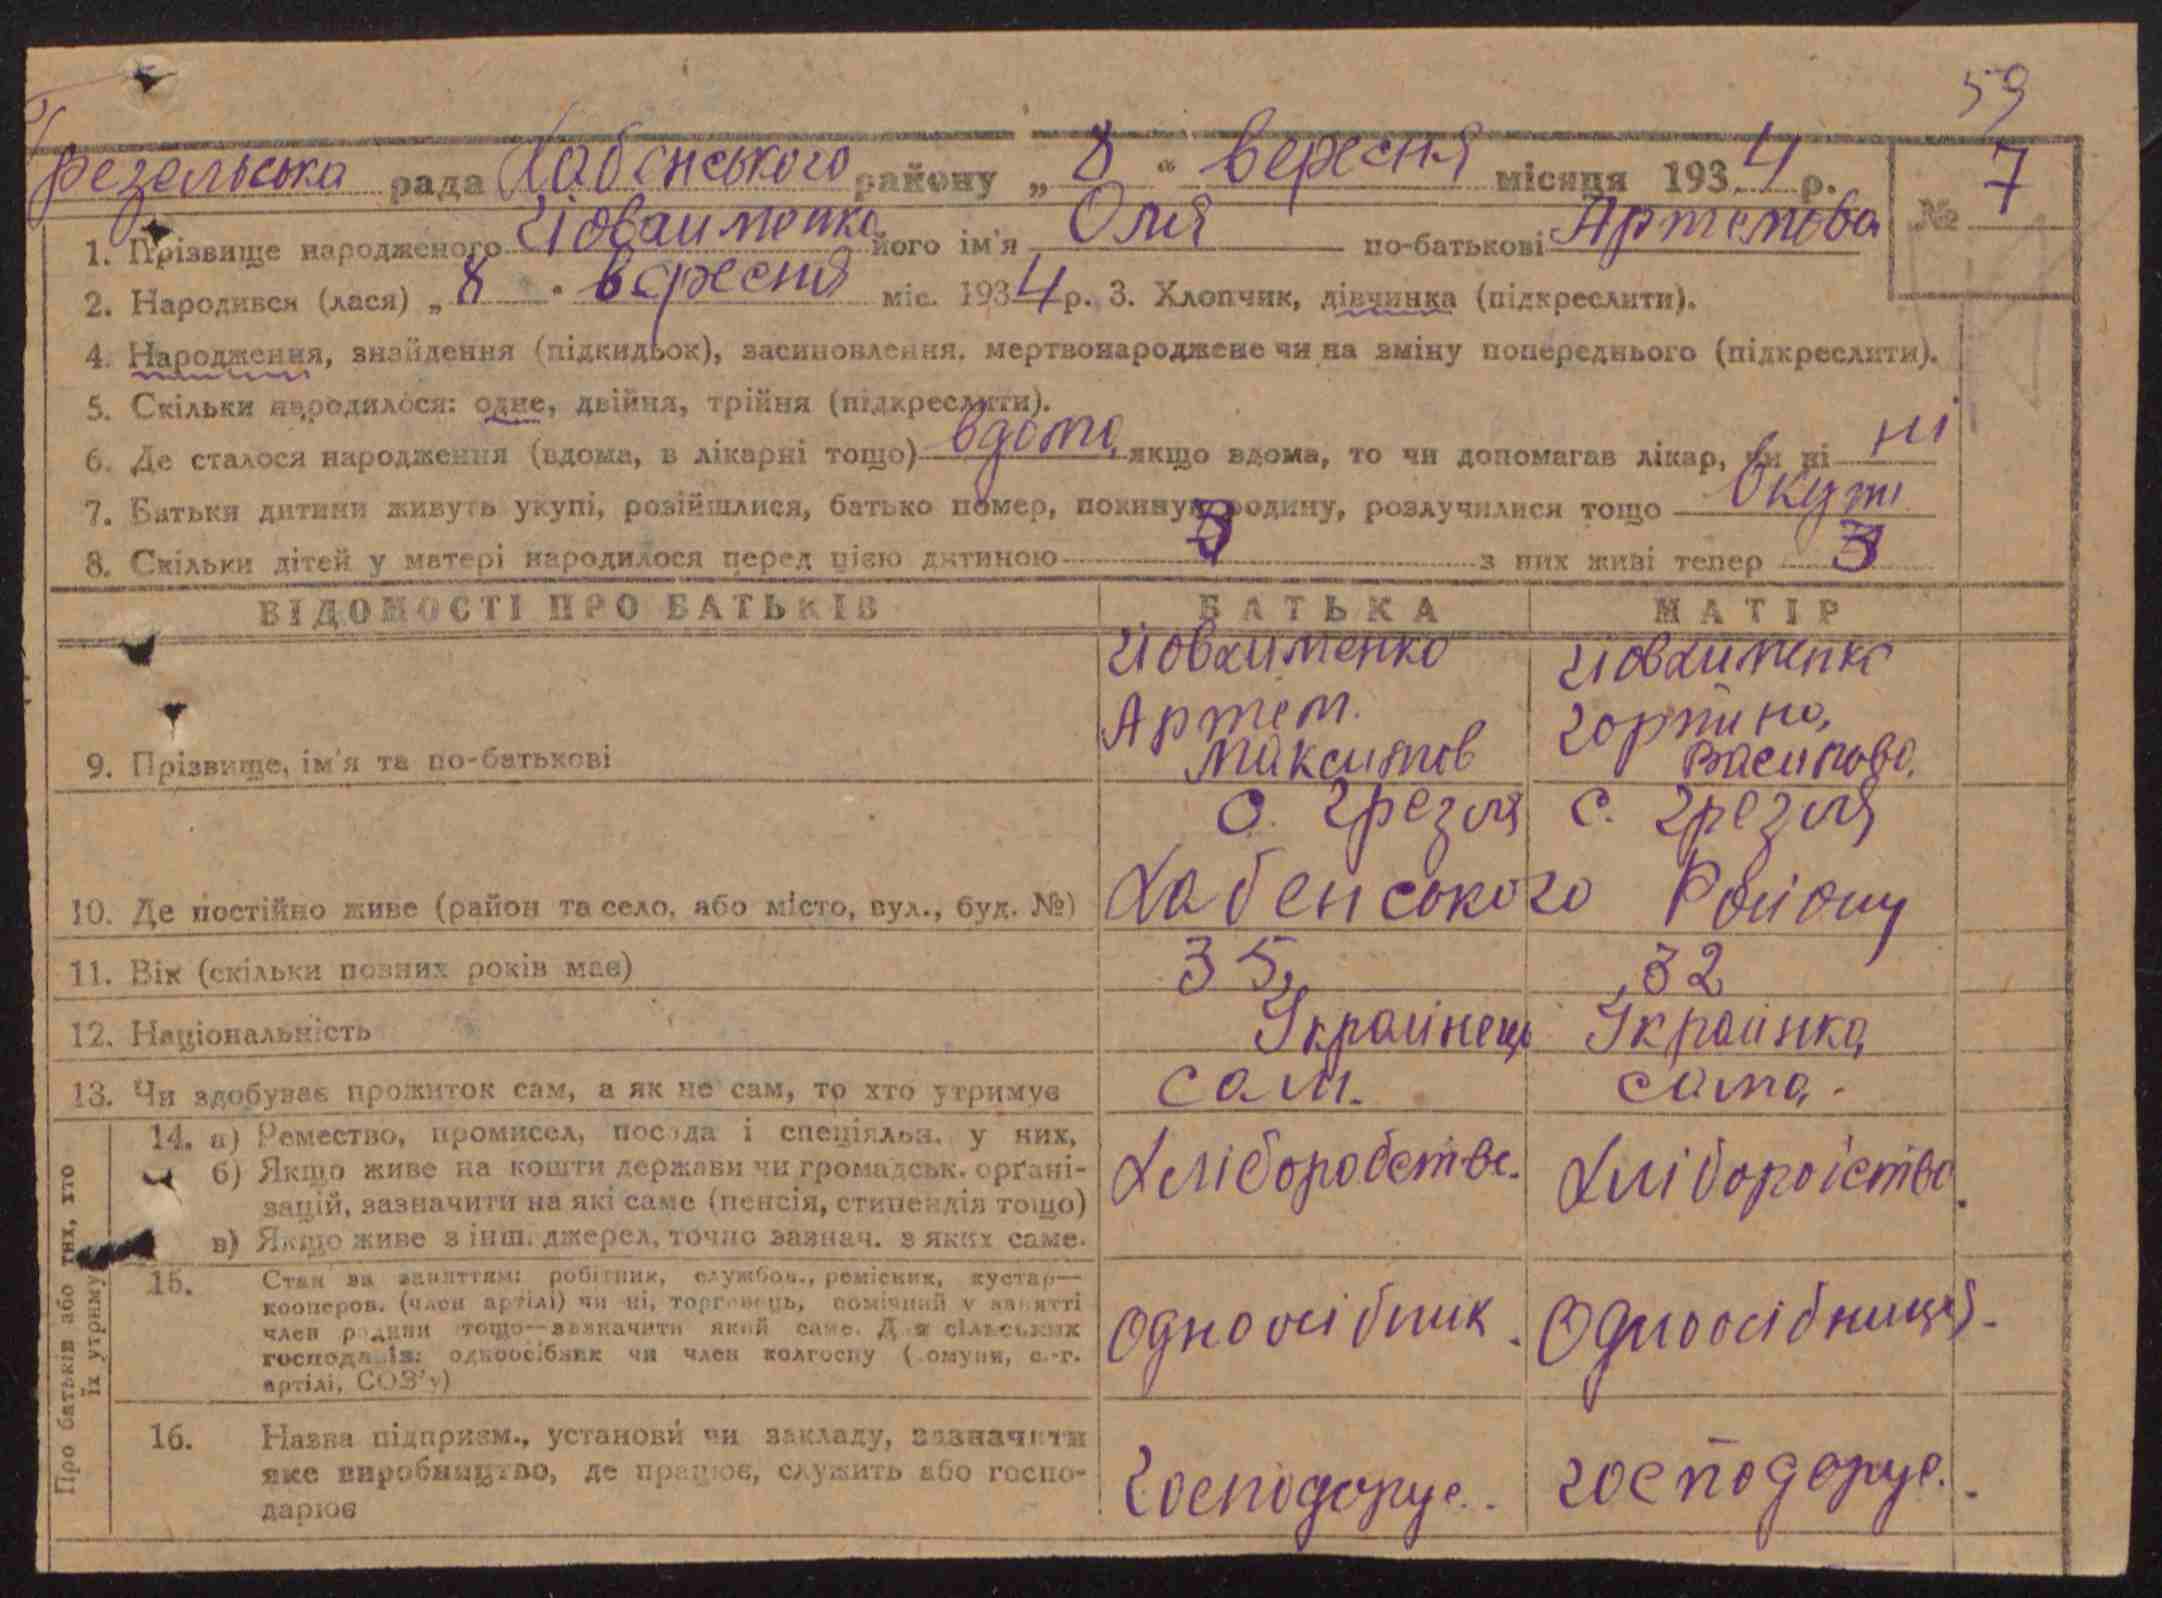 59
Грезельська рада Хабенського району „ 8 “ вересня місяця 1934 р.
№ 7
1. Прізвище народженого Йовхименко його ім'я Оля по-батькові Артемова
2. Народився (лася) „ 8 “ вересня міс. 1934 р. 3. Хлопчик, дівчинка (підкреслити).
4. Народження, знайдення (підкидьок), засиновлення, мертвонароджене чи на зміну попереднього (підкреслити).
5. Скільки народилося: одне, двійня, трійня (підкреслити).
6. Де сталося народження (вдома, в лікарні тощо) вдома, якщо вдома, то чи допомагав лікар, чи ні ні
7. Батьки дитини живуть укупі, розійшлися, батько помер, покинув родину, розлучилися тощо вкупі
8. Скільки дітей у матері народилося перед цією дитиною 3 з них живі тепер 3
ВІДОМОСТІ ПРО БАТЬКІВ БАТЬКА МАТІР
Йовхименко Йовхименко
Артем. Гортина,
9. Прізвище, ім'я та по-батькові Максимов Василова.
с. Грезля с. Грезля
10. Де постійно живе (район та село, або місто, вул., буд. №) Хабенсокого Району
11. Вік (скільки повних років має) 35, 32
12. Національність Українець Українка,
13. Чи здобуває прожиток сам, а як не сам, то хто утримує сам. сама, -
Про батьків або тих, хто їх утримує
14. а) Ремество, промисел, посада і спеціяльн. у них,
б) Якщо живе на кошти держави чи громадськ. орґані-
зацій, зазначити на які саме (пенсія, стипендія тощо)
в) Якщо живе з інш. джерел, точно зазнач. з яких саме.
Хліборобство. Хліборобство.
15. Стан за заняттям: робітник, службов., ремісник, кустар—
кооперов. (член артілі) чи ні, торговець, помічний у занятті
член родини тощо—зазначити який саме. Для сільських
господарів: одноосібник чи член колгоспу (комуни, с.-г.
артілі, СОЗ'у)
Одноосібник. Одноосібниця. -
16. Назва підприєм., установи чи закладу, зазначити
яке виробництво, де працює, служить або госпо-
дарює
Господорує.. господорує..